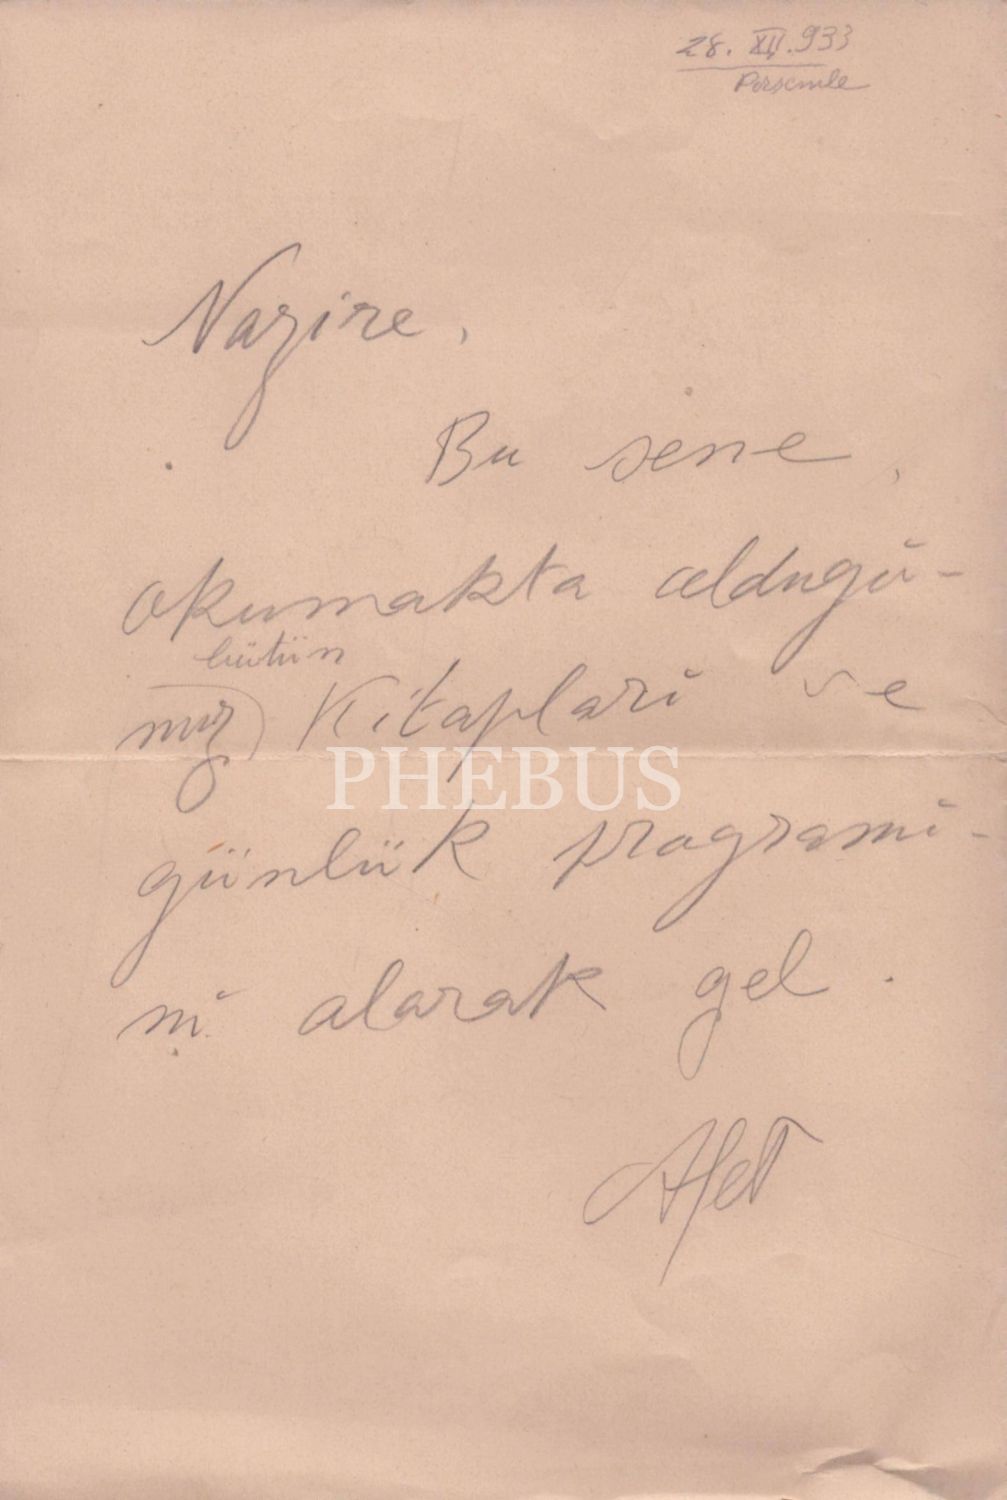 28. XII. 933
Perşembe
Nazire,
Bu sene,
okumakta olduğu-
bütün
nuz Kitapları ve
PHEBUS
günlük programı-
nı alarak gel.
Afet